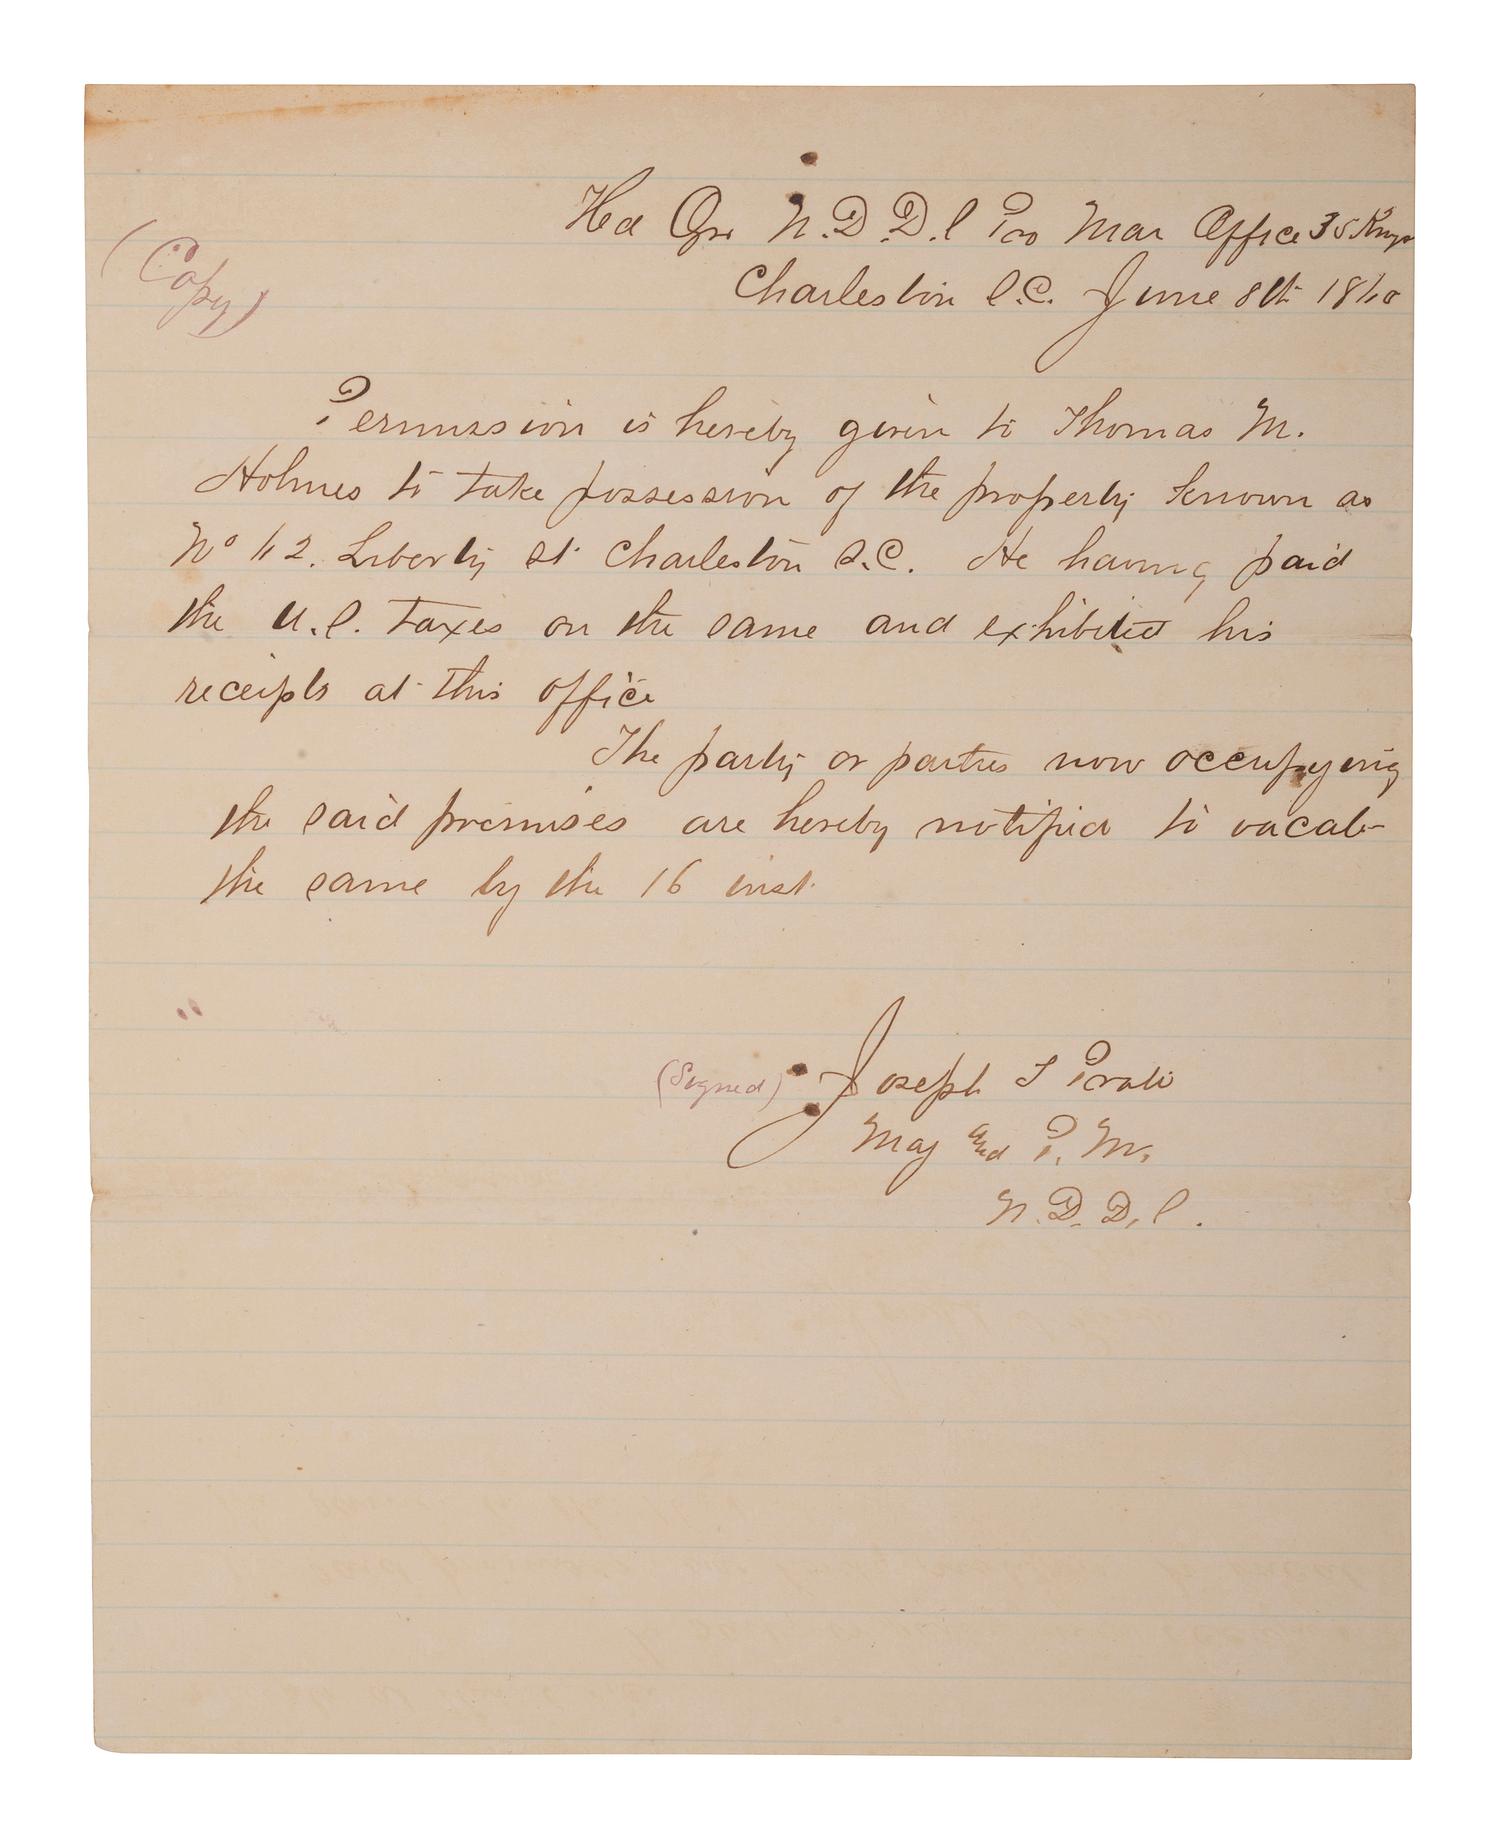 (Copy)
Hd Qrs N.D.D.S Pro Mar Office 35 King
Charleston S.C. June 8th 1865
Permission is hereby given to Thomas M.
Holmes to take possession of the property known as
No 42. Liberty St Charleston S.C. He having paid
the U.S. taxes on the same and exhibited his
receipts at this office
The party or parties now occupying
the said premises are hereby notified to vacate
the same by the 16 inst.
(Signed) Joseph S Pratt
Maj and P. M.
N.D.D.S.